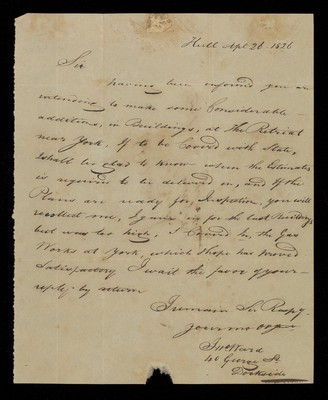 Hull Apl 26 1826
Sir
having been informed you are
intending to make some Considerable
additions, in Buildings, at the Retreat
near York, If to be Coverd with Slate,
I shall be glad to know when the Estimates
is required to be delivered in, and If the
Plans are ready for Inspection, you will
recollect me, I gave in for the last Buildings
but was too high, I Coverd in the Gas
Works at York, which I hope has proved
Satisfactory I wait the favor of your
reply by return
I remain Sir Respy
your mo
Ward
46 George St